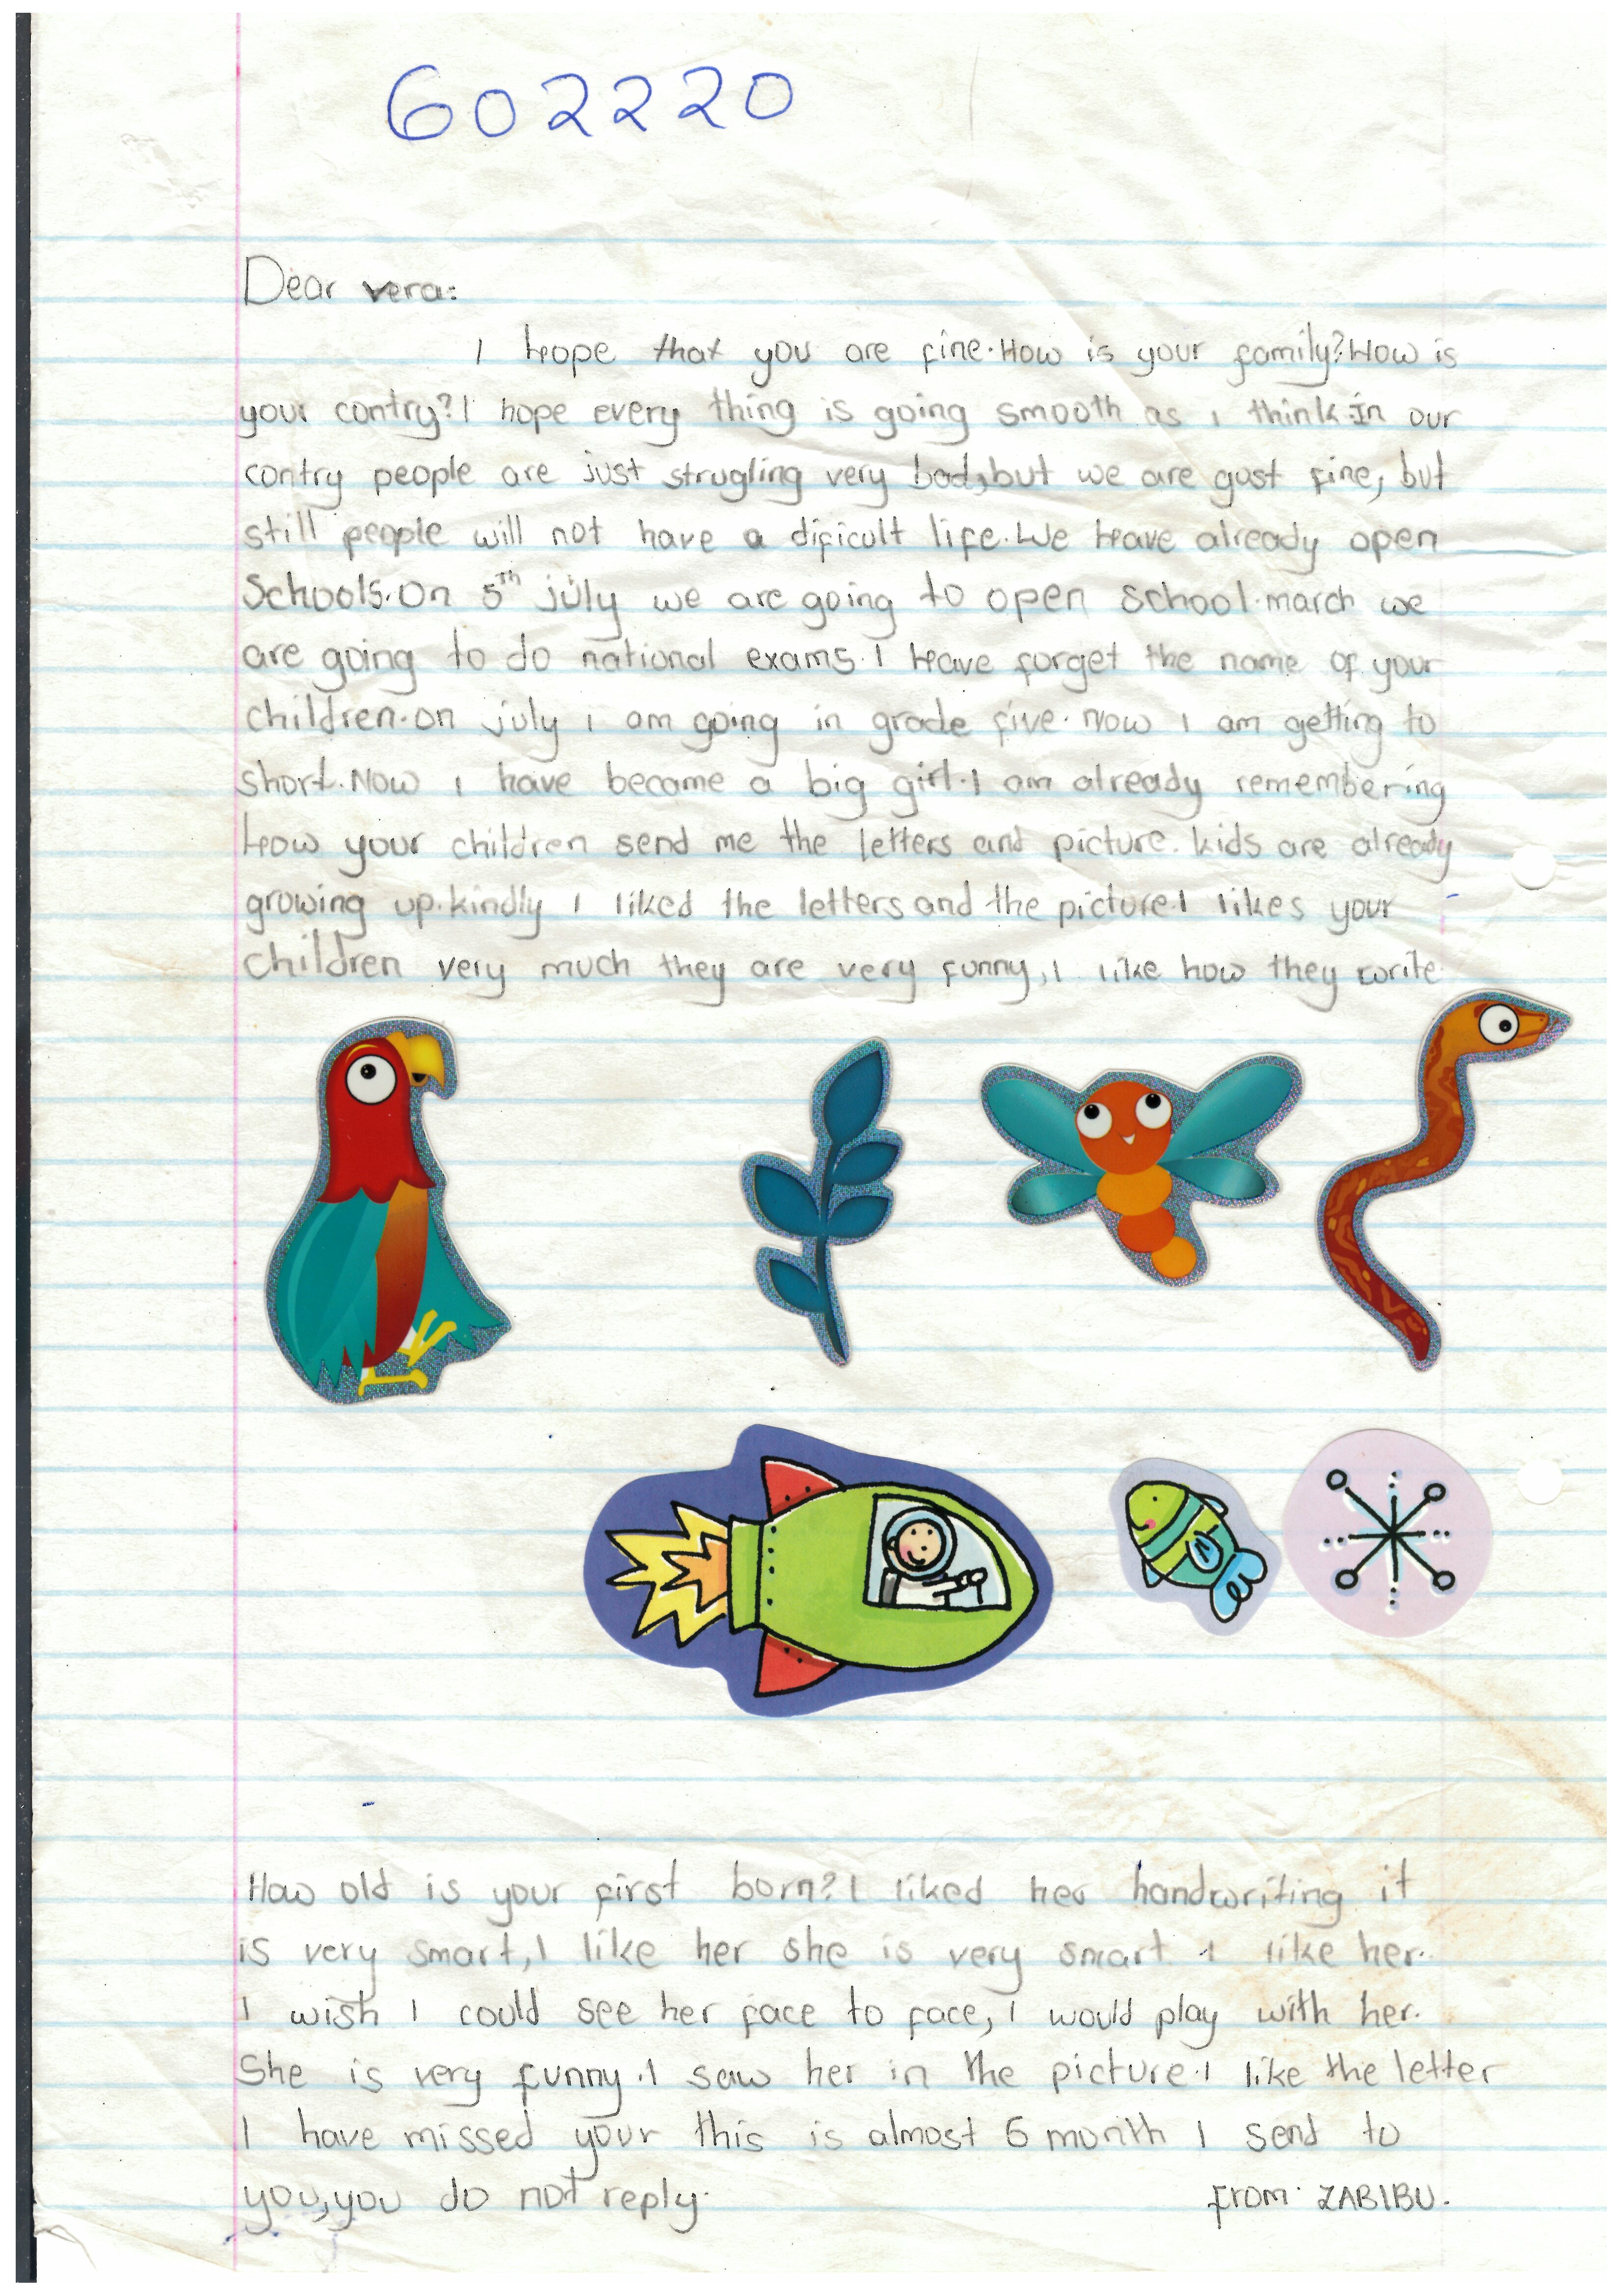 602220
Dear vera:
I hope that you are fine. How is your family? How is
your contry? I hope every thing is going smooth as i think. In our
contry people are just strugling very bad, but we are gust fine, but
still people will not have a dificult life. We have already open
Schools. On 5th july we are going to open school. march we
are going to do national exams. I have forget the name of your
children. on july i am going in grade five. Now i am getting to
short. Now i have became a big girl. I am already remembering
how your children send me the letters and picture. kids are already
growing up. kindly i liked the letters and the picture. I likes your
children very much they are very funny, I like how they write
How old is your first born? I liked her handwriting it
is very smart, I like her she is very smart I like her.
I wish I could see her face to face, I would play with her.
She is very funny. I saw her in the picture. I like the letter
I have missed your this is almost 6 month I send to
you, you do not reply.
from. ZABIBU.